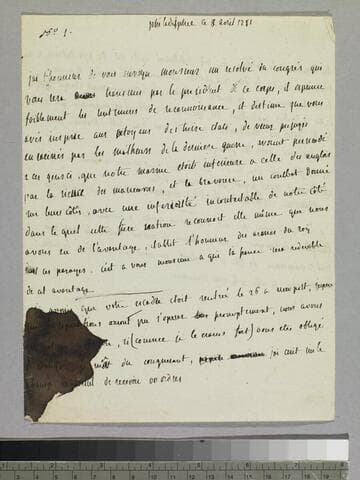 philadelphie le 8 avril 1781
N° 1.
j'ai l'honneur de vous envoyer monsieur un resolvé du congrès qui
vous sera transmis par le président de ce corps, il exprime
foiblement les sentimens de reconnoissance, et d'estime que vous
avés inspiré aux citoyens des treize etats, de vieux préjugés
enracinés par les malheurs de la derniere guerre, avoient persuadé
a ces gens ci, que notre marine etoit inferieure a celle des anglois
par la des manoeuvres, et la bravoure, un combat donné
sur leurs côtes, avec une inferiorité incontestable de notre côté
dans le quel cette fiere nation reconnoit elle même que nous
avons eu de l'avantage, établit l'honneur des armes du roy
dans ces parages. c'est a vous monsieur a que la france sera redevable
de cet avantage.
que votre escadre etoit rentrée le 26 a newport,
reparations auront pu s'operer promptement, vous avés
, si (comme je le crains fort) vous etes obligé
du conquerant, j'ai ecrit
de recevoir vos ordres